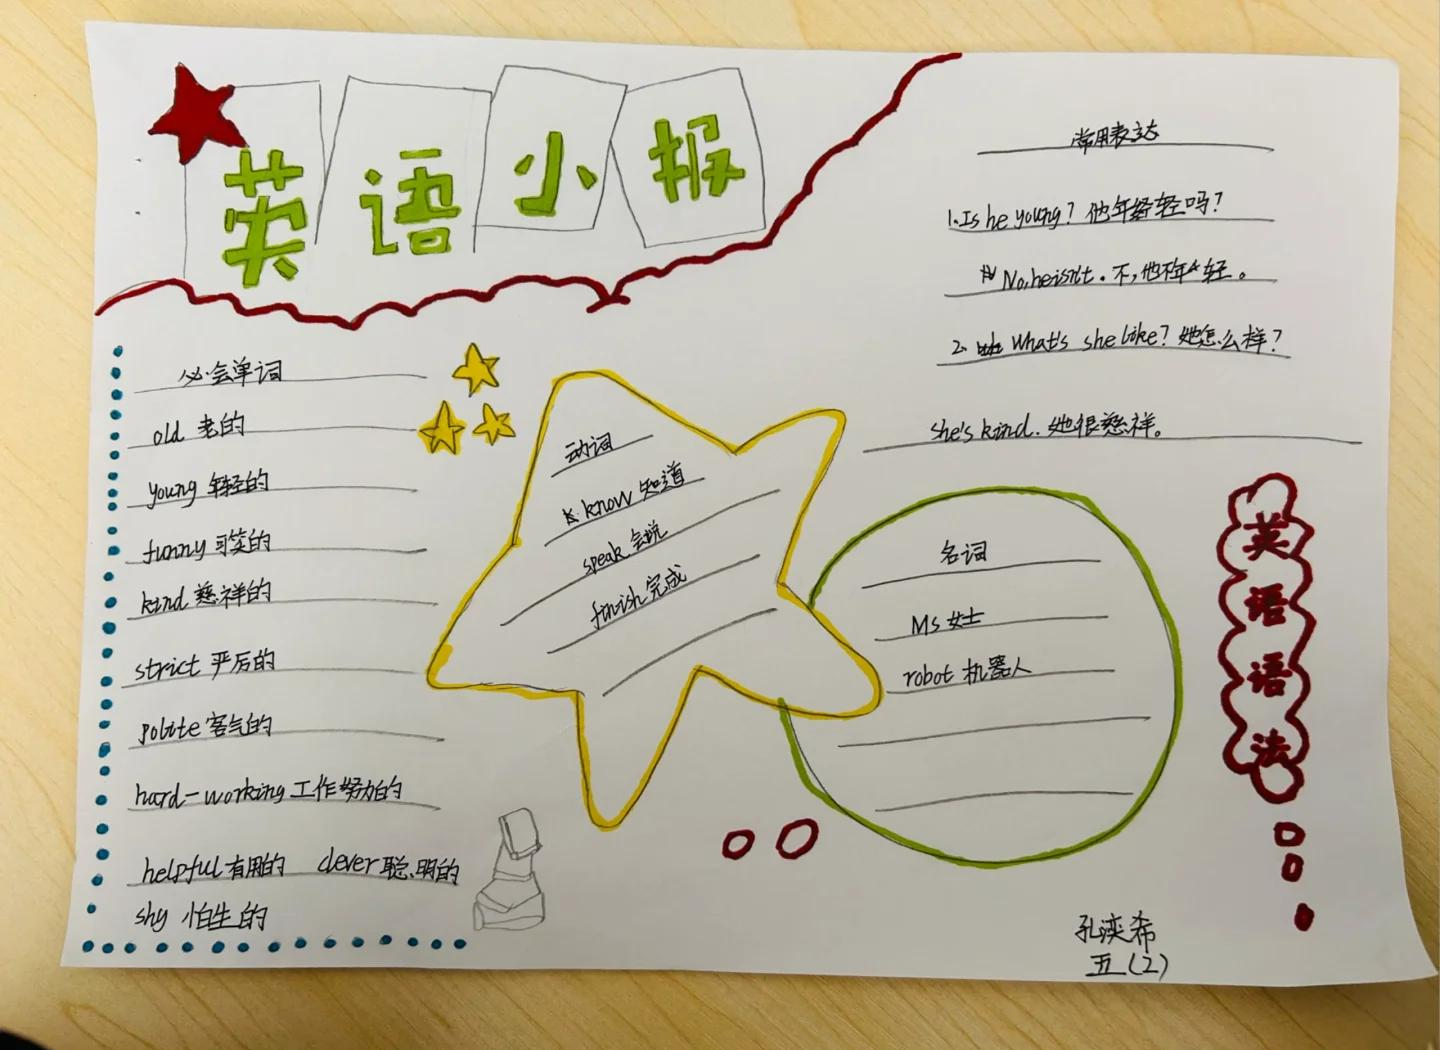 英语小报
常用表达
1. Is he young? 他年轻吗?
No, he isn't. 不,他不年轻。
2. What's she like? 她怎么样?
she's kind. 她很慈祥。
必会单词
old 老的
young 年轻的
funny 可笑的
kind 慈祥的
strict 严厉的
polite 客气的
hard-working 工作努力的
helpful 有用的 clever 聪明的
shy 怕生的
动词
know 知道
speak 会说
finish 完成
名词
Ms 女士
robot 机器人
英语语法
孔浃希
五(2)